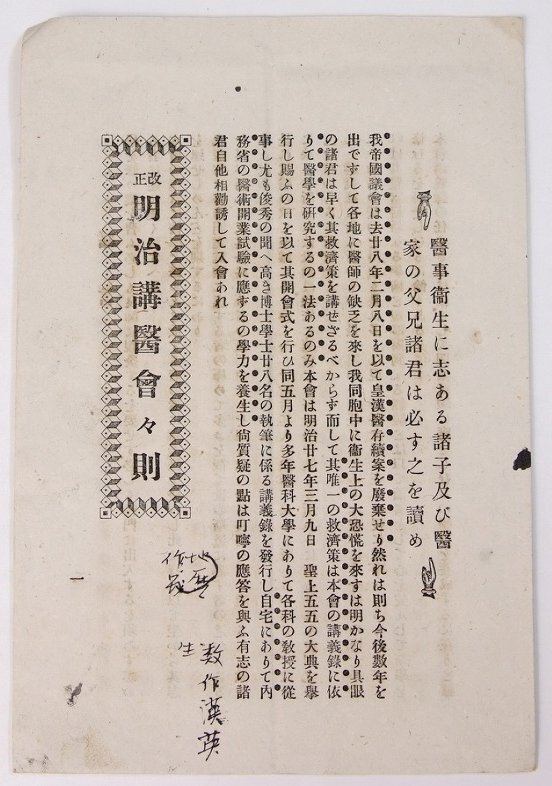 醫事衞生に志ある諸子及び醫
家の父兄諸君は必す之を讀め
我帝國議會は去廿八年二月八日を以て皇漢醫存續案を廢棄せり然れは則ち今後數年を
出でずして各地に醫師の缺乏を來し我同胞中に衞生上の大恐慌を來すは明かなり具眼
の諸君は早く其救濟策を講せざるべからず而して其唯一の救濟策は本會の講義錄に依
りて醫學を硏究するの一法あるのみ本會は明治廿七年三月九日　聖上五五の大典を擧
行し賜ふの日を以て其開會式を行ひ同五月より多年醫科大學にありて各科の敎授に從
事し尤も俊秀の聞へ高き博士學士廿八名の執筆に係る講義錄を發行し自宅にありて內
務省の醫術開業試驗に應するの學力を養生し尙質疑の點は叮嚀の應答を與ふ有志の諸
君自他相勸誘して入會あれ
改正
明治講醫會々則
一
地歷
作
数作漢英
生